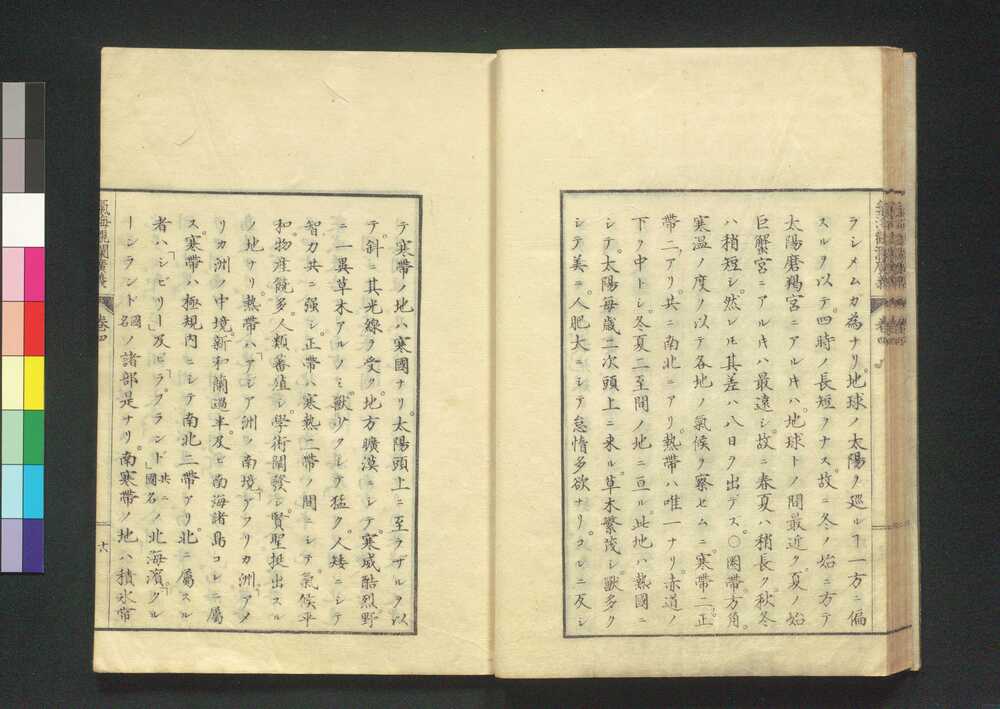 ラシメムカ為ナリ。地球ノ太陽ヲ巡ルヿ一方ニ偏
スルヲ以テ。四時ノ長短ヲナス。故ニ冬ノ始ニ方テ
太陽磨羯宮ニアルキハ。地球トノ間最近ク。夏ノ始
巨蟹宮ニアルキハ最遠シ。故ニ春夏ハ稍長ク。秋冬
ハ稍短シ。然レ𪜈其差ハ八日ヲ出デス。〇圏帯方角。
寒温ノ度ノ以テ各地ノ氣候ヲ察セムニ。寒帶二。正
帶二アリ。共ニ南北ニアリ。熱帶ハ唯一ナリ。赤道ノ
下ヲ中トシ。冬夏二至間ノ地ニ亘ル。此地ハ熱國ニ
シテ。太陽毎歳二次頭上ニ来ル。草木繁茂シ。獸多ク
シテ美ニ。人肥大ニシテ怠惰多欲ナリ。コレニ反シ
テ寒帶ノ地ハ寒國ナリ。太陽頭上ニ至ラザルヲ以
テ。斜ニ其光線ヲ受ク。地方曠漠ニシテ。寒威酷烈。野
ニ一異草木アルノミ。獸少クシテ猛ク。人矮ニシテ
智力共ニ强シ。正帶ハ寒熱二帶ノ間ニシテ。氣候平
和物産饒多。人類蕃殖シ。學術闡發シ。賢聖挺出スル
ノ地ナリ。熱帶ハ「アジア洲ノ南境」「アフリカ洲」「アメ
リカ洲ノ中境。新和蘭過半。及ビ南海諸島コレニ屬
ス。寒帶ハ極規内ニシテ南北二帶アリ。北ニ屬スル
者ハ「シビリー」及ビ「ラプランド共ニ國名ノ北海濱。「グル
ーンランド國名ノ諸部是ナリ。南寒帶ノ地ハ積氷帶
氣海觀瀾廣義
卷四
十六